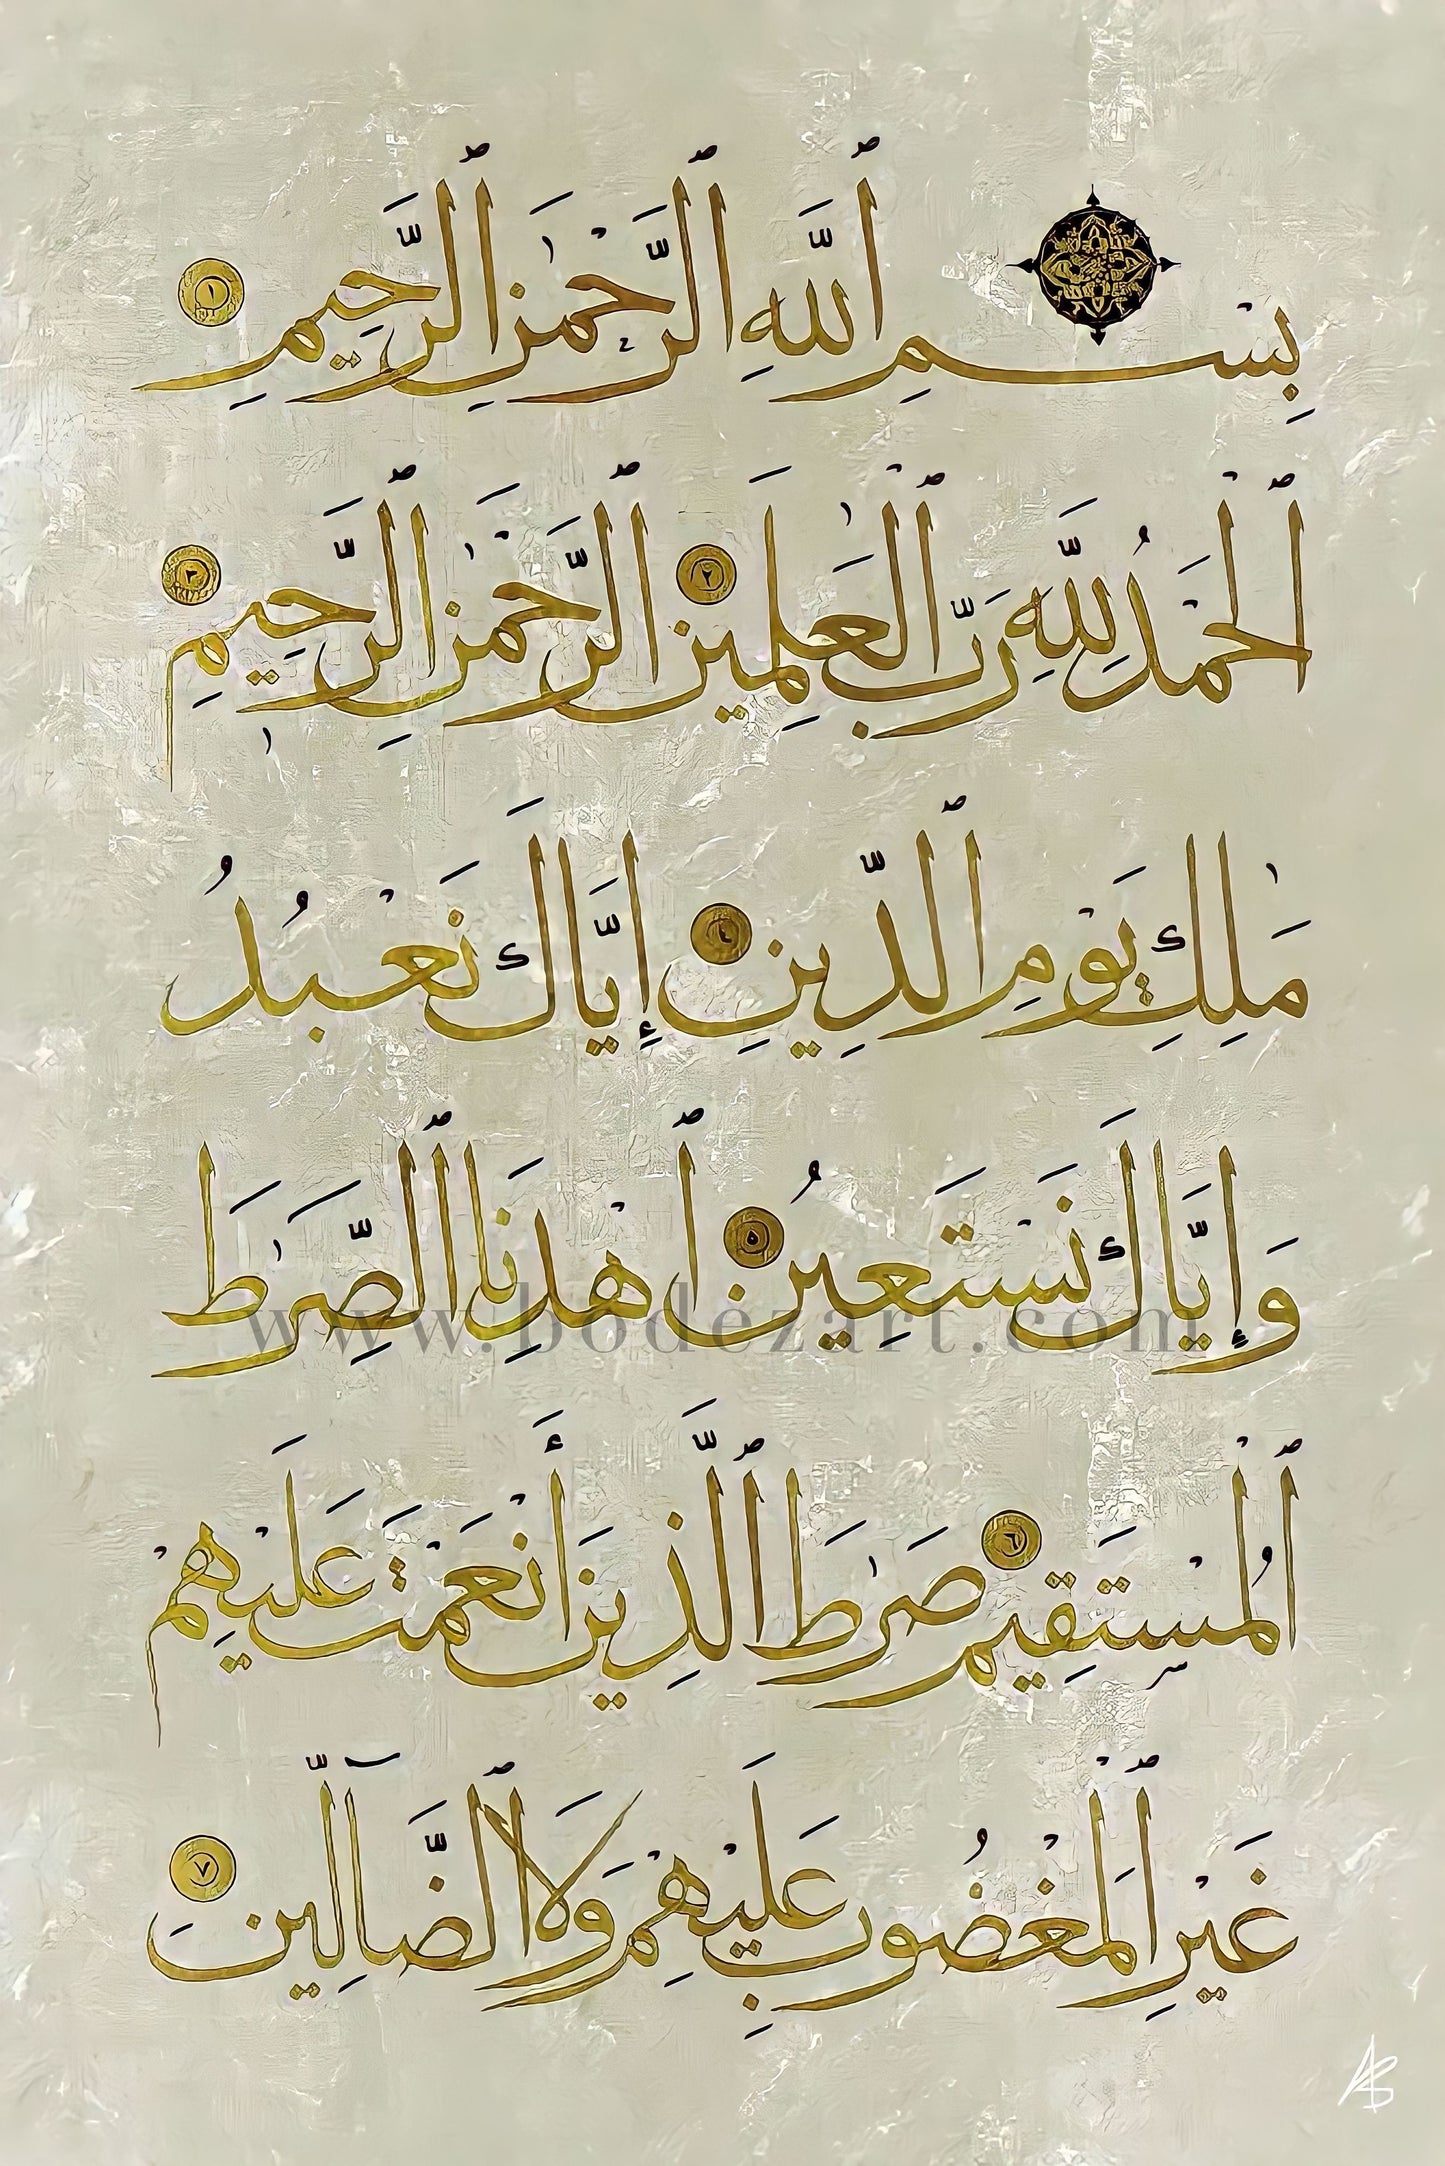 بِسْمِ ٱللَّهِ ٱلرَّحْمَٰنِ ٱلرَّحِيمِ ١
ٱلْحَمْدُ لِلَّهِ رَبِّ ٱلْعَٰلَمِينَ ٢ ٱلرَّحْمَٰنِ ٱلرَّحِيمِ ٣
مَٰلِكِ يَوْمِ ٱلدِّينِ ٤ إِيَّاكَ نَعْبُدُ
وَإِيَّاكَ نَسْتَعِينُ ٥ ٱهْدِنَا ٱلصِّرَٰطَ
www.bodezart.com
ٱلْمُسْتَقِيمَ ٦ صِرَٰطَ ٱلَّذِينَ أَنْعَمْتَ عَلَيْهِمْ
غَيْرِ ٱلْمَغْضُوبِ عَلَيْهِمْ وَلَا ٱلضَّآلِّينَ ٧